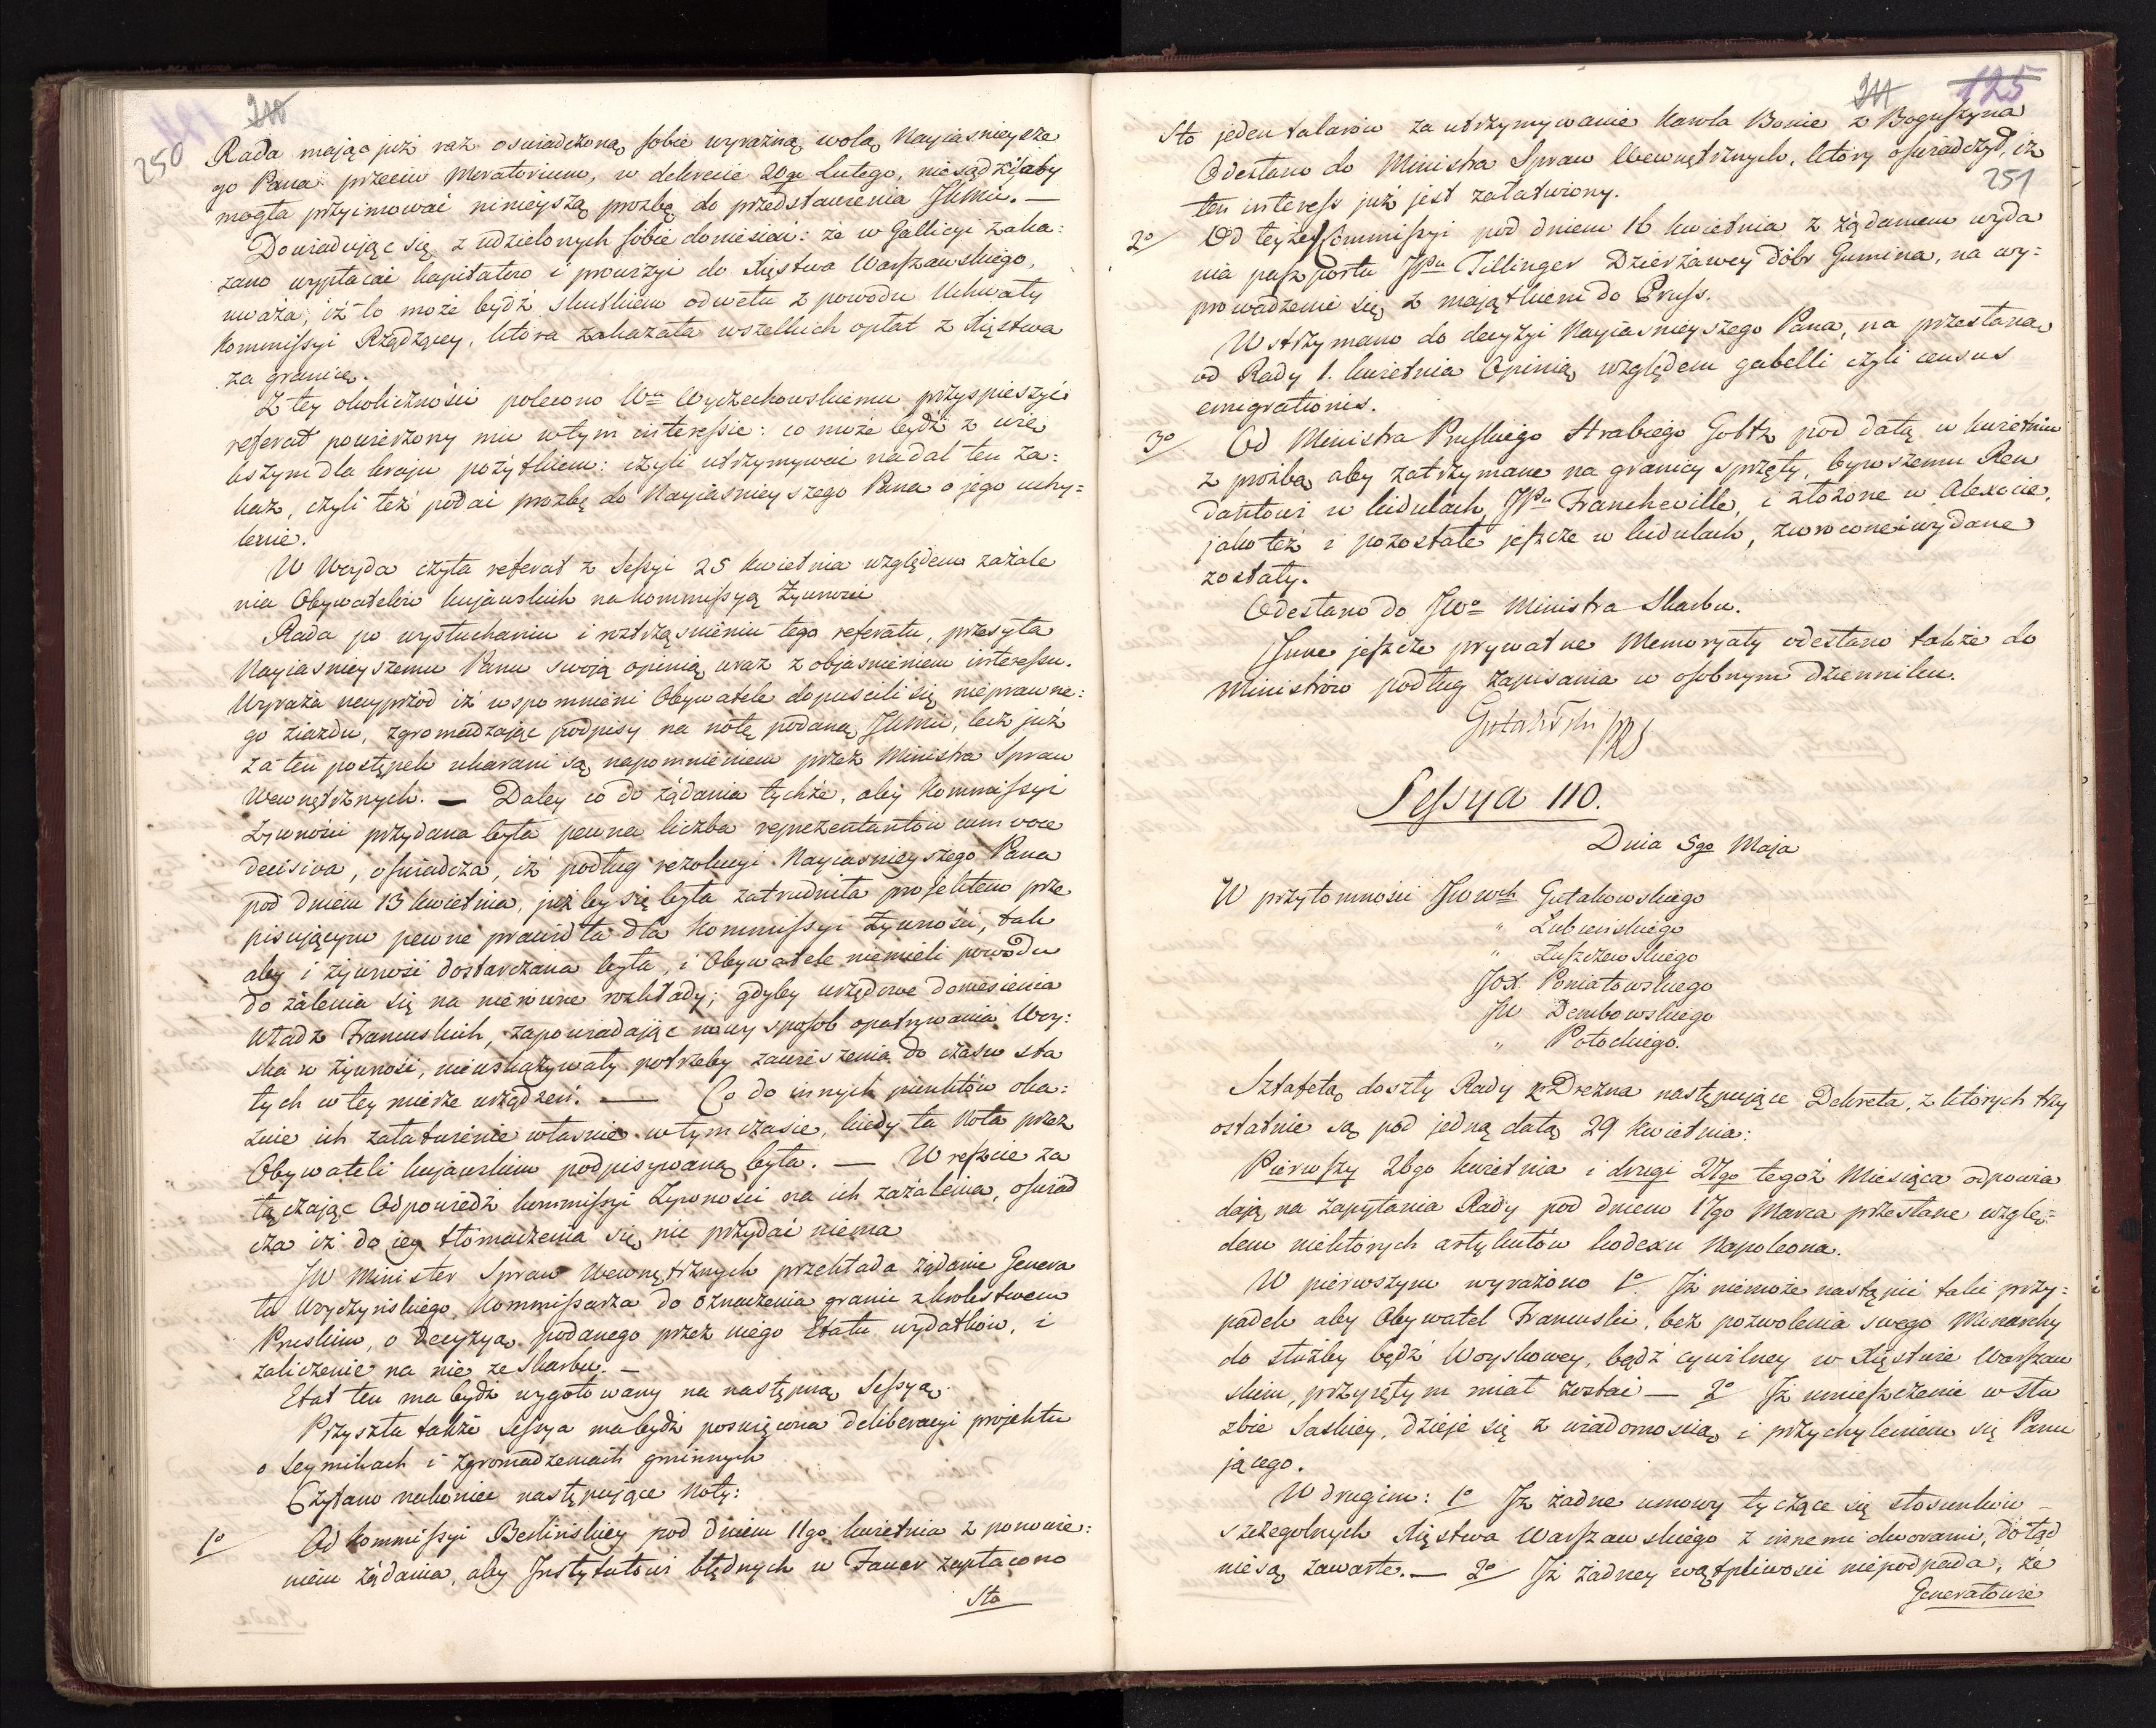 250
Rada mając już raz oswiadczoną sobie wyraźną wolą Nayiasnieysze
go Pana przeciw Moratorium, w dekrecie 20go Lutego, nie sądzi aby
mogła przyimować ninieyszą prozbę do przedstawienia JKMci. —
Dowiadując się z udzielonych sobie doniesień: że w Gallicyi zaka:
zano wypłacać kapitałow i prowizyi do Xięstwa Warszawskiego,
uważa, iż to może bydź skutkiem odwetu z powodu Uchwały
Kommissyi Rządzącey, która zakazała wszelkich opłat z Xięstwa
za granicę.
Z tey okoliczności polecono Wu Wyczechowskiemu przyspieszyć
referat powierzony mu w tym interessie: co może bydź z wię
kszym dla kraju pożytkiem: czyli utrzymywać nadal ten za:
kaz, czyli też podać prozbę do Nayiasnieyszego Pana o jego uchy=
lenie.
W Woyda czyta referat z Sessyi 25 Kwietnia względem zażale
nia Obywatelów kujawskich na Kommissyą Żywności
Rada po wysłuchaniu i roztrząśnieniu tego referatu, przesyła
Nayiasnieyszemu Panu swoją opinią wraz z objasnieniem interessu.
Wyraża nayprzod iż wspomnieni Obywatele dopuscili się nieprawne:
go ziazdu, zgromadzając podpisy na notę podaną JKMci, lecz już
za ten postępek ukarani są napomnieniem przez Ministra Spraw
Wewnętrznych. — Daley co do żądania tychże, aby Kommissyi
Żywności przydana była pewna liczba reprezentantów cum voce
decisiva, oswiadcza, iż podług rezolucyi Nayiasnieyszego Pana
pod dniem 13 Kwietnia, już by się była zatrudniła projektem prze
pisującym pewne prawidła dla Kommissyi Żywności, tak
aby i żywność dostarczana była, i Obywatele niemieli powodu
do żalenia się na nierowne rozkłady; gdyby urzędowe doniesienia
Władz Francuskich, zapowiadając nowy sposob opatrywania Woy:
ska w żywność, nieukazywały potrzeby zawieszenia do czasu sta
łych w tey mierze urządzeń. — Co do innych punktów oka:
zuie ich załatwienie własnie w tym czasie, kiedy ta Nota przez
Obywateli kujawskim podpisywaną była. — Wreszcie za
łączając Odpowiedź Kommissyi Żywności na ich zażalenia, oswiad
cza iż do jey tłomaczenia się nic przydać niema
JW Minister Spraw Wewnętrznych przekłada żądanie Genera
ła Woyczyńskiego, Kommissarza do oznaczenia granic z Krolestwem
Pruskim, o decyzyą podanego przez niego Etatu wydatków, i
zaliczenie na nie ze Skarbu. —
Etat ten ma bydź wygotowany na następną Sessyą.
Przyszła także Sessya ma bydź poswięcona deliberacyi projektu
o Seymikach i Zgromadzeniach gminnych
Czytano nakoniec następujące Noty:
1o Od Kommissyi Berlińskiey pod dniem 11go kwietnia z ponowie:
niem żądania, aby Instytutowi błędnych w Jauer zapłacono
Sto
125
251
Sto jeden talarów za utrzymywanie Karola Bonie z Boguszyna
Odesłano do Ministra Spraw Wewnętrznych, który oswiadczył, iż
ten interess już jest załatwiony.
2o Od teyże Kommissyi pod dniem 16 kwietnia z żądaniem wyda
nia paszportu JPu Tillinger Dzierżawcy dóbr Gumina, na wy=
prowadzenie się z majątkiem do Pruss.
Wstrzymano do decyzyi Nayiasnieyszego Pana, na przesłaną
od Rady 1. kwietnia Opinią względem gabelli czyli census
emigrationis.
3o Od Ministra Pruskiego Hrabiego Goltz pod datą w kwietniu
z proźbą aby zatrzymane na granicy sprzęty, bywszemu Ren
dantowi w kidulach, JPu Francheville, i złożone w Alexocie,
jako też i pozostałe jeszcze w kidulach, zwrocone i wydane
zostały.
Odesłano do JWo Ministra Skarbu.
Inne jeszcze prywatne Memoryały odesłano także do
Ministrów podług zapisania w osobnym dzienniku.
Gutakowski PRS
Sessya 110.
Dnia 5go Maja
W przytomności JWwch Gutakowskiego
" Lubienskiego
" Łuszczewskiego
JOX. Poniatowskiego
JW Dembowskiego
" Potockiego.
Sztafetą doszły Rady z Drezna następujące Dekreta, z których trzy
ostatnie są pod jedną datą 29 Kwietnia:
Pierwszy 26go kwietnia i drugi 27go tegoż Miesiąca odpowia
dają na zapytania Rady pod dniem 17go Marca przesłane wzglę=
dem niektórych artykułów kodexu Napoleona.
W pierwszym wyrażono 1o Iż niemoże nastąpić taki przy:
padek aby Obywatel Francuski, bez pozwolenia swego Monarchy
do służby bądź Woyskowey, bądź cywilney w Xięstwie Warszaw
skim, przyjętym miał zostać — 2o Iż umieszczenie w słu
zbie Saskiey, dzieje się z wiadomością i przychyleniem się Panu
jącego.
W drugim: 1o Iż żadne umowy tyczące się stosunków
szczegolnych Xięstwa Warszawskiego z innemi dworami, dotąd
niesą zawarte. — 2o Iż żadney wątpliwości niepodpada, że
Generałowie